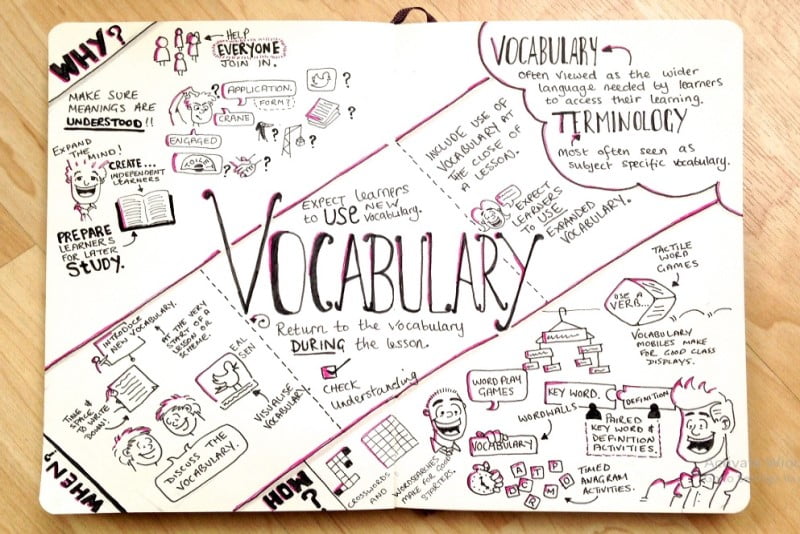 WHY?
HELP
EVERYONE
JOIN IN.
MAKE SURE
MEANINGS ARE
UNDERSTOOD!!
APPLICATION.
FORM?
CRANE
ENGAGED
TOILET
?
?
?
?
?
EXPAND
THE MIND!
CREATE...
INDEPENDENT
LEARNERS
PREPARE
LEARNERS
FOR LATER
STUDY.
VOCABULARY
Often viewed as the wider
language needed by learners
to access their learning.
TERMINOLOGY
Most often seen as
subject specific vocabulary.
INCLUDE USE OF
VOCABULARY AT
THE CLOSE OF
A LESSON.
EXPECT
LEARNERS
TO USE
EXPANDED
VOCABULARY.
EXPECT learners
to USE NEW
vocabulary.
VOCABULARY
Return to the vocabulary
DURING the lesson.
CHECK
Understanding
INTRODUCE
NEW VOCABULARY.
AT THE VERY
START OF A
LESSON OR
SCHEME.
TIME &
SPACE
TO WRITE
DOWN!
EAL
SEN
VISUALISE
VOCABULARY
DISCUSS THE
VOCABULARY.
WHEN?
HOW?
CROSSWORDS
AND
WORDSEARCHES
MAKE FOR GOOD
STARTERS.
WORD PLAY
GAMES
WORDWALLS
VOCABULARY
TACTILE
WORD
GAMES
USE A
VERB...
VOCABULARY
MOBILES MAKE
FOR GOOD CLASS
DISPLAYS.
KEY WORD.
DEFINITION
PAIRED
KEY WORD &
DEFINITION
ACTIVITIES.
A T P
D C R M O
TIMED
ANAGRAM
ACTIVITIES.